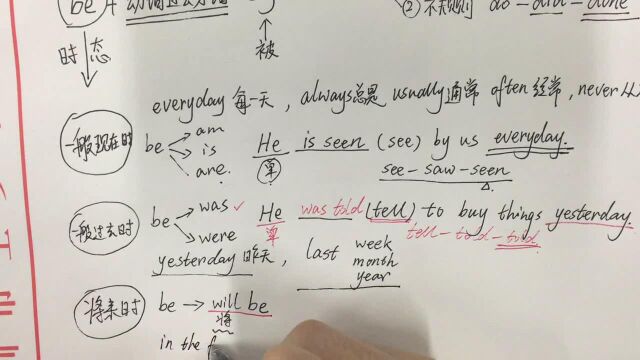 be + 动词过去分词
② 不规则 do-did-done
时态
被
everyday 每一天, always总是 usually通常 often 经常, never从
一般现在时 be am
is
are.
He is seen (see) by us everyday.
单 see-saw-seen
一般过去时 be was ✓
were
He was told (tell) to buy things yesterday.
单 tell-told-told
yesterday 昨天, last week
month
year
将来时 be → will be
将
in the f